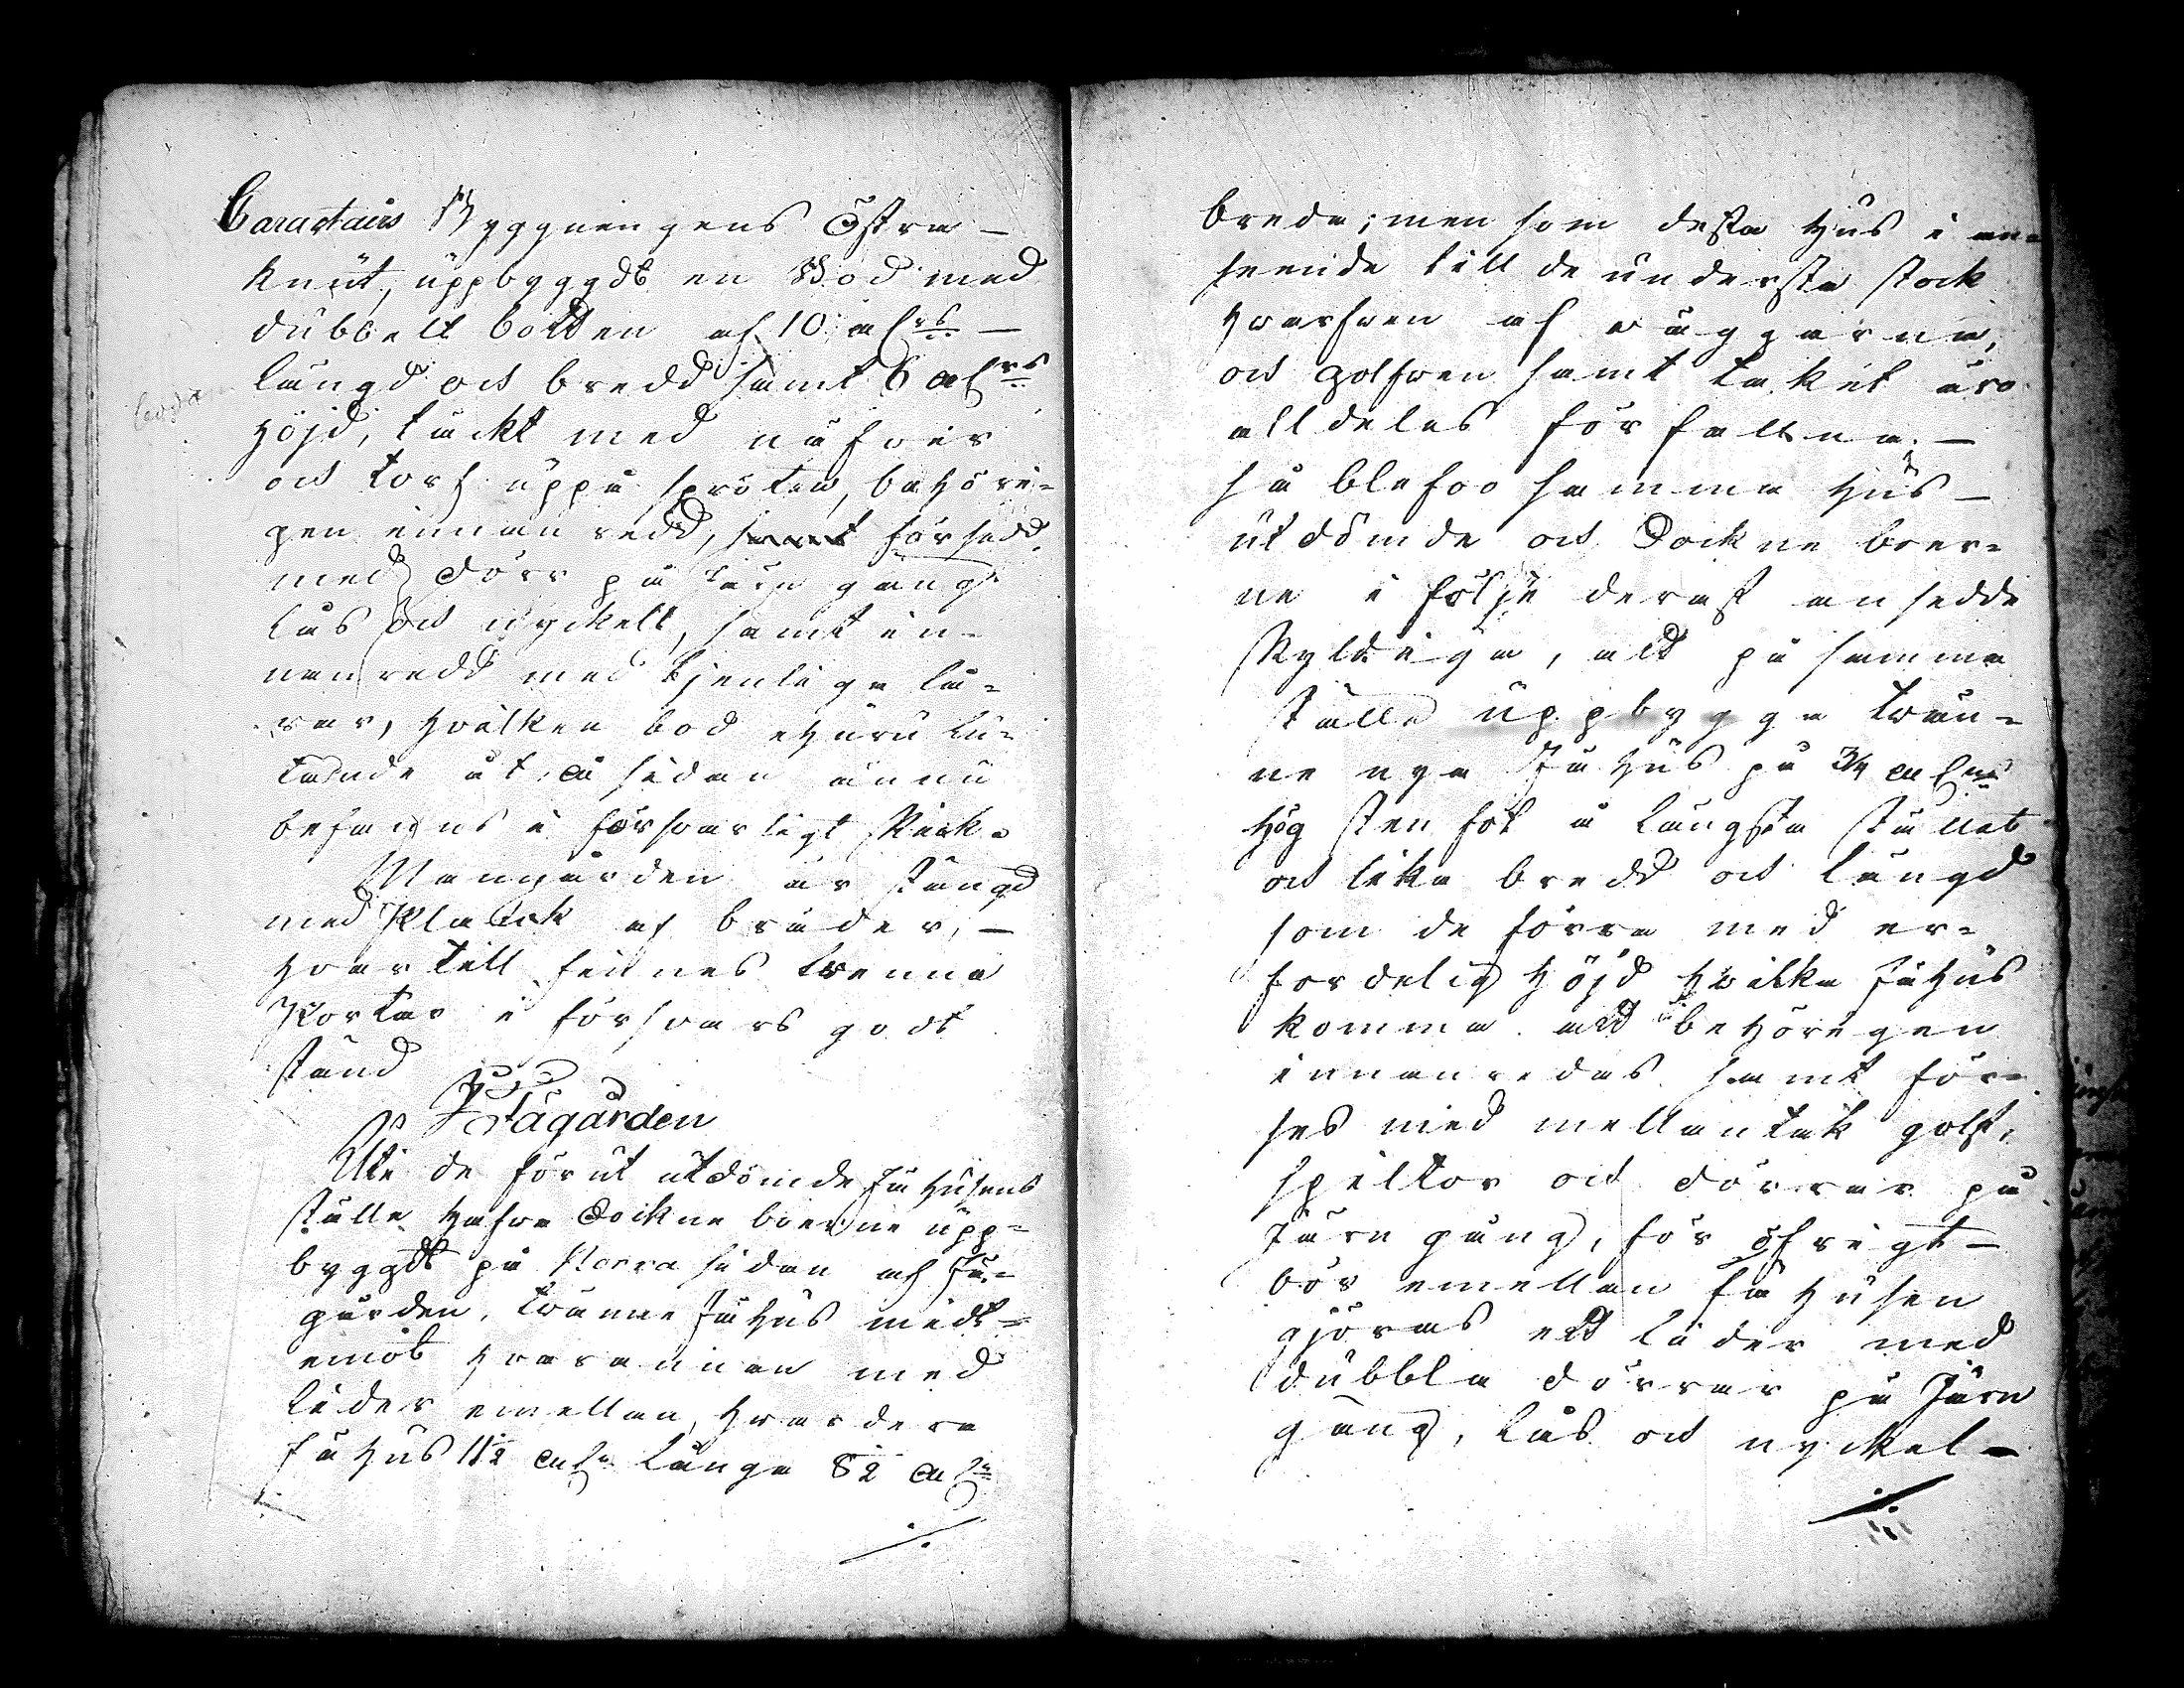 Caractairs Byggningens Östra –
knut, uppbyggdt en Bod med
dubbelt botten af 10 alrs –
längd och bredd samt 6 alrs
höjd, täckt med näfver
och torf uppå spröten, behöri-
gen innanredd, försedd
med dörr på järn gång
lås och nyckell, samt in-
nanredd med tjenlige la-
rar, hvilken bod ehuru lu-
tande åt ena sidan ännu
befanns i försvarligt skick.
Mangården är stängd
med Planck af bräder, –
hvartill finnes trenne
Portar i försvars godt
stånd
Fägården
Uti de förut utdömde fähusens
ställe hafva Sockne boerne upp-
byggdt på Norra sidan af Fä-
gården, tvänne fähus midt-
emot hvarannan med
lider emellan, hvardera
fähus 11½ aln långa 8½ aln
./.
breda; men som dessa hus i an-
seende till de understa stock
hvarfven af väggarna,
och golfven samt taket äro
alldeles förfallna. –
så blefvo samma hus –
utdömde och Sockne boer-
ne i följe deraf ansedde
skyldige, att på samma
ställe uppbygga tvän-
ne nya Fähus på ¾ alns
hög stenfot å lägsta stället
och lika bredd och längd
som de förra med er-
forderlig höjd hvilka fähus
komma att behörigen
innanredas samt för-
ses med mellantak golf,
spiltor och dörrar på
järn gång, för öfrigt –
bör emellan fähusen
gjöras ett lider med
dubbla dörrar på Järn
gång, lås och nyckel –
./.